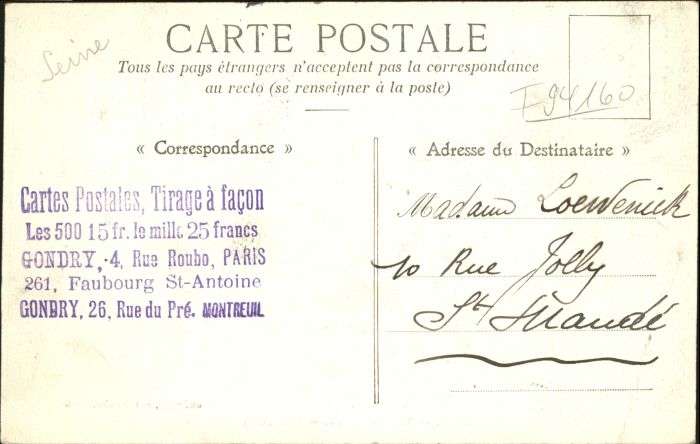 Seine
CARTE POSTALE
Tous les pays étrangers n'acceptent pas la correspondance
au recto (se renseigner à la poste)
I-94160
« Correspondance »
« Adresse du Destinataire »
Cartes Postales, Tirage à façon
Les 500 15 fr. le mille 25 francs
GONDRY, 4, Rue Roubo, PARIS
261, Faubourg St-Antoine
GONDRY, 26, Rue du Pré. MONTREUIL
Madame Loewenick
10 Rue Jolly
St Mandé